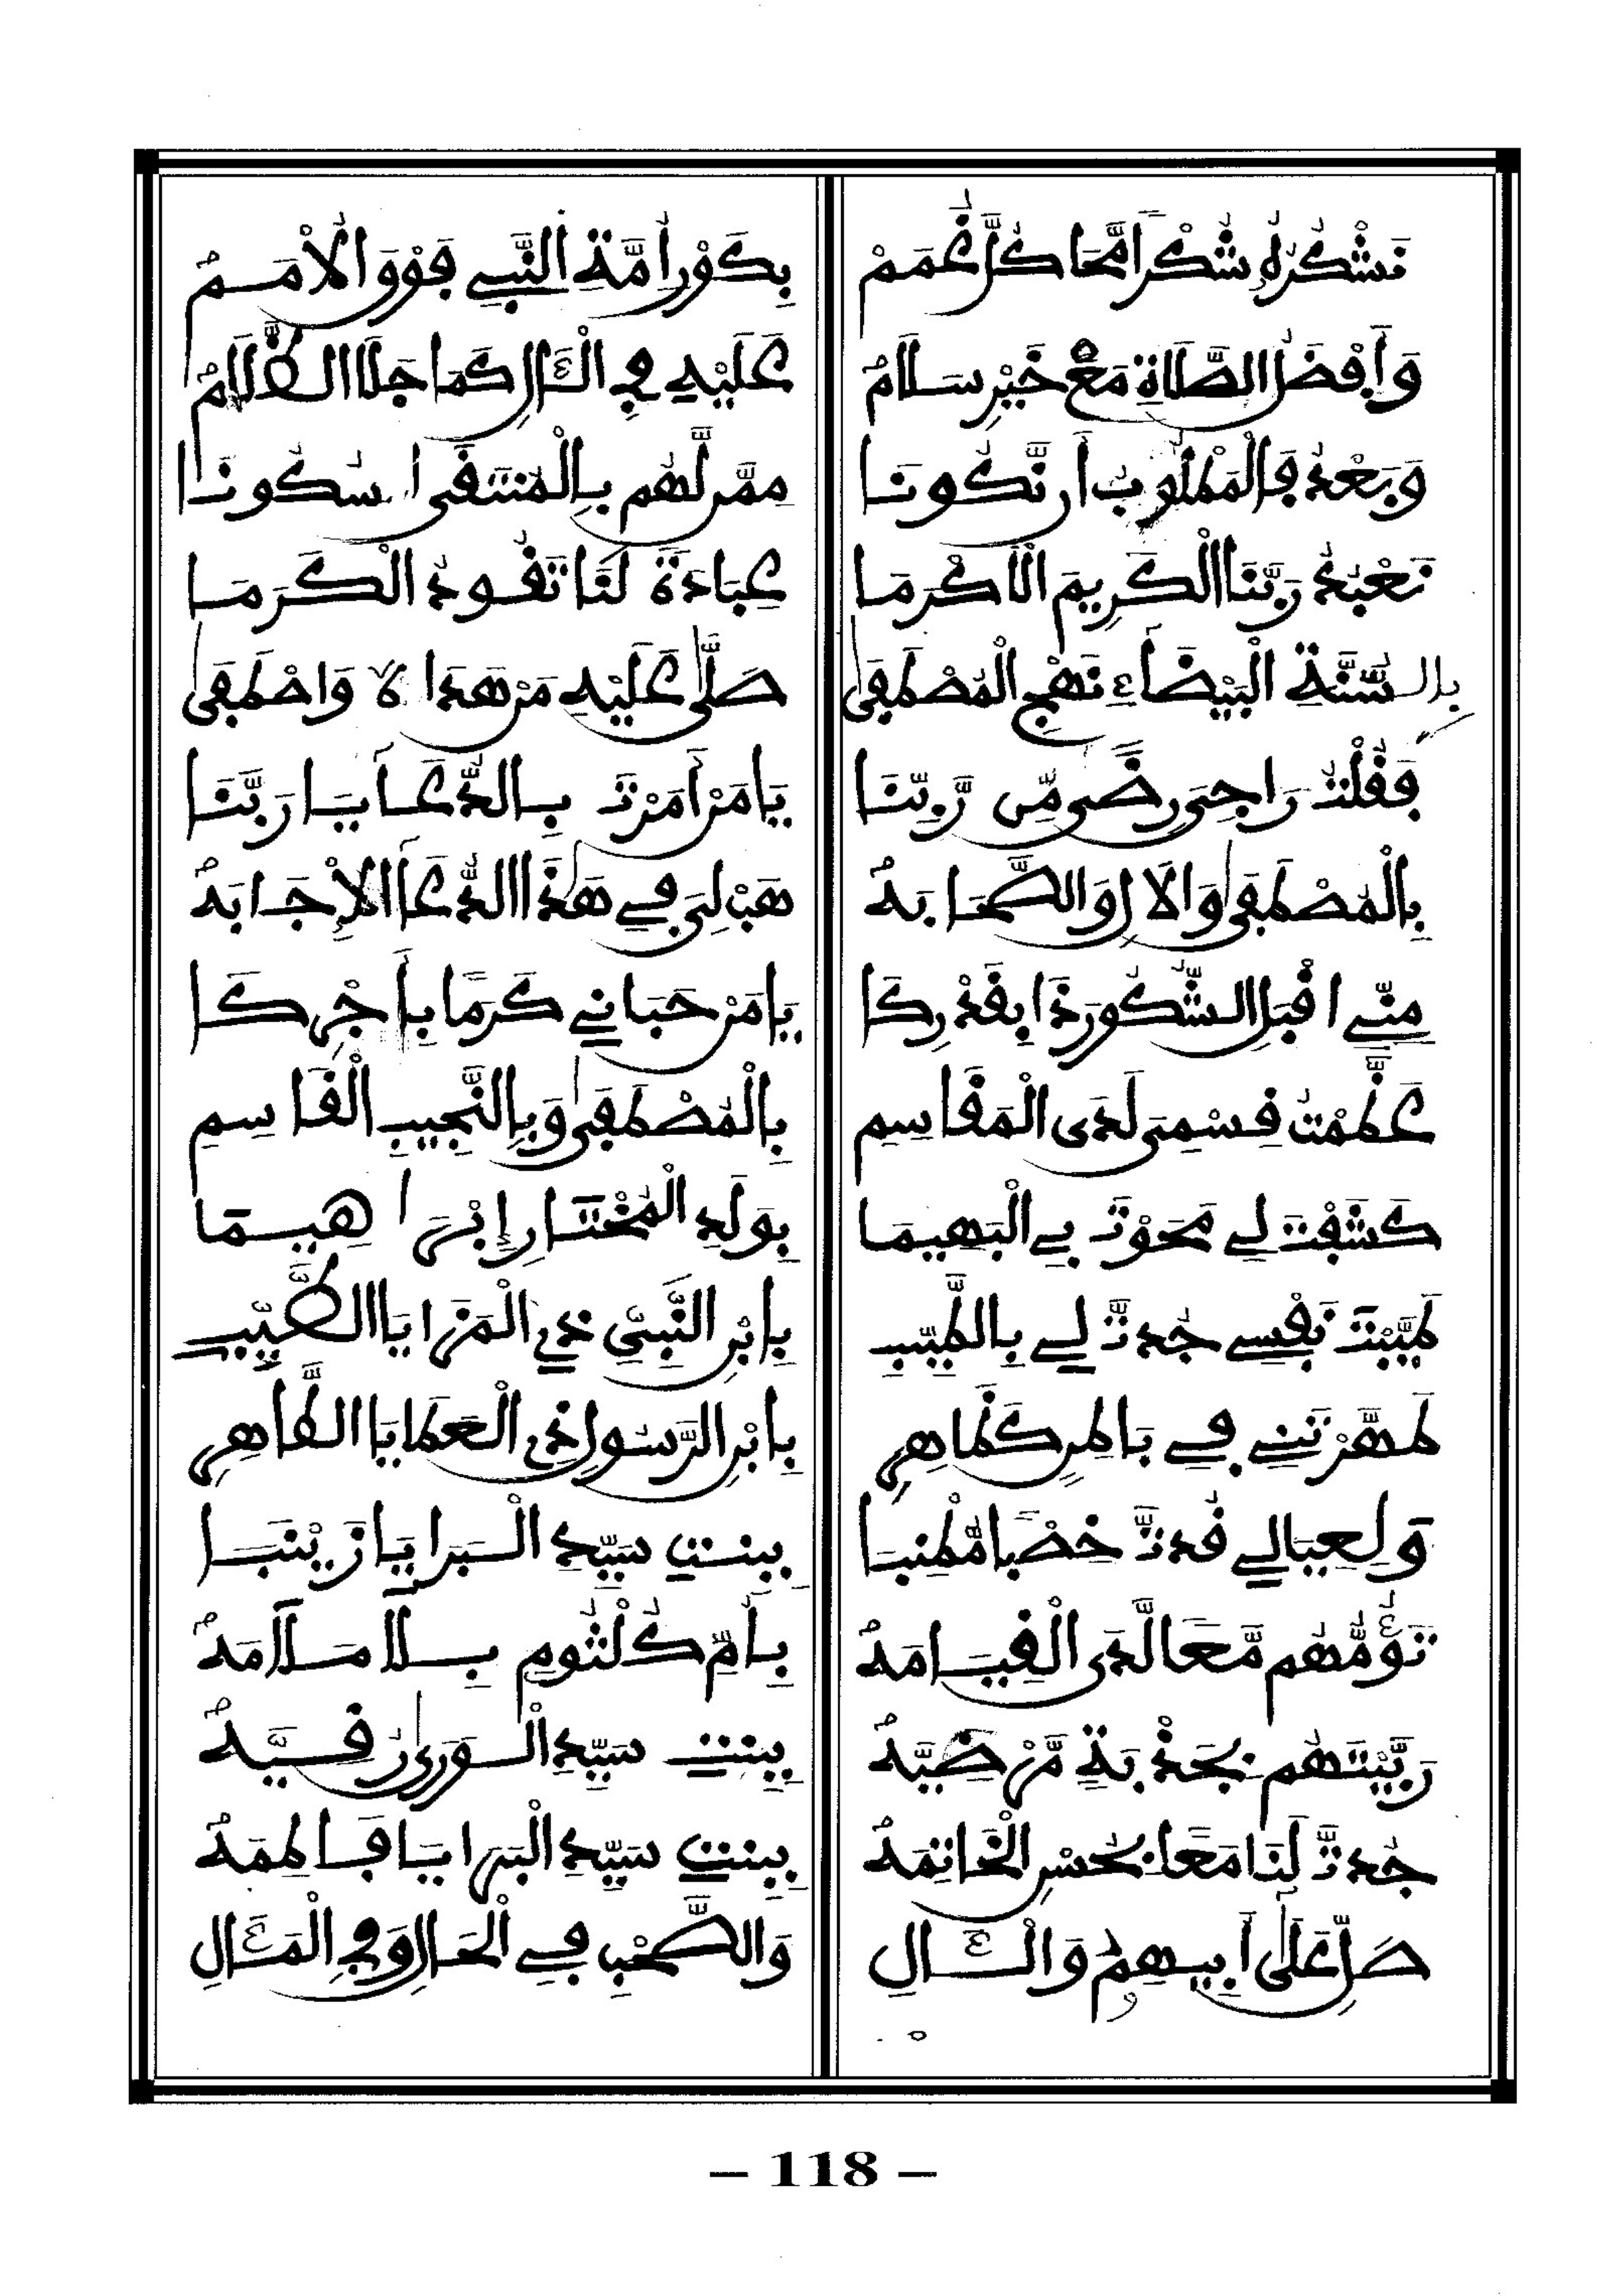 نَشْكُرُهُ شُكْرًا مَّحَا كُلَّ غُمَمْ بِكَوْنِ أُمَّةِ النَّبِي فَوْقَ الْأُمَمُ
وَأَفْضَلُ الصَّلَاةِ مَعْ خَيْرِ سَلَامُ عَلَيْهِ فِي الْآلِ كَمَا جَلَا الظَّلَامُ
وَبَعْدُ فَالْمَطْلُوبُ أَن نَّكُونَا مِمَّن لَهُم بِالْمُنتَقَى سُكُونَا
نَعْبُدُ رَبَّنَا الْكَرِيمَ الْأَكْرَمَا عِبَادَةً لَنَا تَقُودُ الْكَرَمَا
بِالسُّنَّةِ الْبَيْضَاءِ نَهْجِ الْمُصْطَفَى صَلَّى عَلَيْهِ مَنْ هَدَاهُ وَاصْطَفَى
فَقُلْتُ رَاجِيَ رِضًى مِّن رَّبِّنَا يَا مَنْ أَمَرْتَ بِالدُّعَا يَا رَبَّنَا
بِالْمُصْطَفَى وَالْآلِ وَالصَّحَابَهْ هَبْ لِيَ فِي هَذَا الدُّعَا الْإِجَابَهْ
مِنِّي اقْبَلِ الشُّكُورَ ذَا بِقَدْرِكَا يَا مَنْ حَبَانِي كَرَمًا بِأَجْرِكَا
عَظُمْتَ قِسْمِي لَدَى الْمَقَاسِمِ بِالْمُصْطَفَى وَبِالنَّجِيبِ الْقَاسِمِ
كَشَفْتَ لِي مَحَوْتَ بِي الْبَهِيمَا بِوَلَدِ الْمُخْتَارِ إِبْرَاهِيمَا
طَيَّبْتَ نَفْسِي جُدتَّ لِي بِالطَّيِّبِ بِابْنِ النَّبِيِّ ذِي الْمَزَايَا الطَّيِّبِ
طَهَّرْتَنِي فِي بَاطِنٍ كَظَاهِرِ بِابْنِ الرَّسُولِ ذِي الْعَطَايَا الطَّاهِرِ
وَلِعِيَالِي قُدتَّ خِصْبًا مُّطْنِبَا بِبِنتِ سَيِّدِ الْبَرَايَا زَيْنَبَا
تَؤُمُّهُم مَّعًا لَّدَى الْقِيَامَهْ بِأُمِّ كُلْثُومِ بِلَا مَلَامَهْ
رَبَّيْتَهُم بِجَذْبَةٍ مَّرْضِيَّهْ بِبِنتِ سَيِّدِ الْوَرَى رُقِيَّهْ
جُدتَّ لَنَا مَعًا بِحُسْنِ الْخَاتِمَهْ بِبِنتِ سَيِّدِ الْبَرَايَا فَاطِمَهْ
صَلِّ عَلَى أَبِيهِمُ وَالْآلِ وَالصَّحْبِ فِي الْحَالِ وَفِي الْمَآلِ
– 118 –